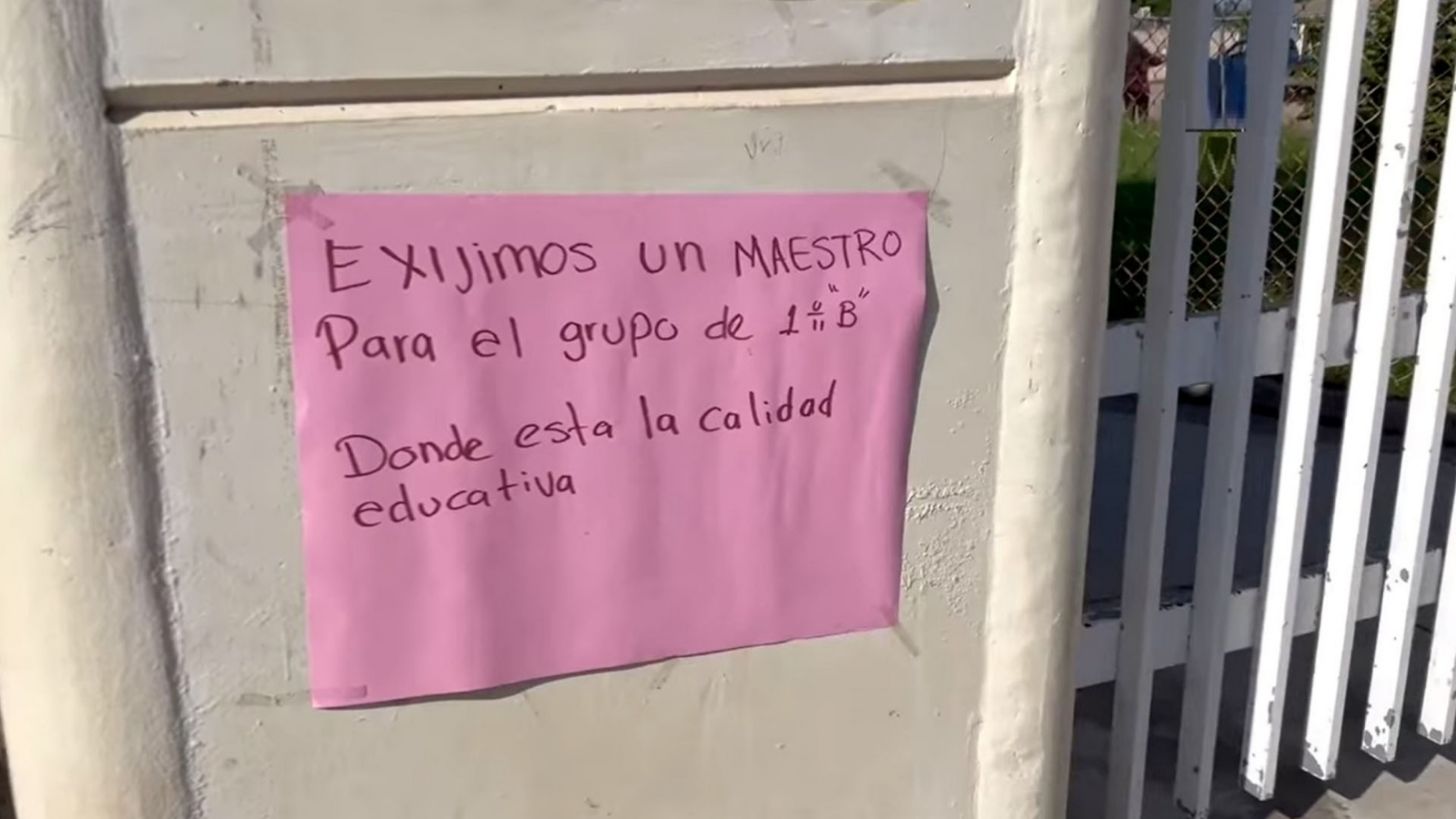 EXIJimos un MAESTRO
Para el grupo de 1º "B"
Donde esta la calidad
educativa